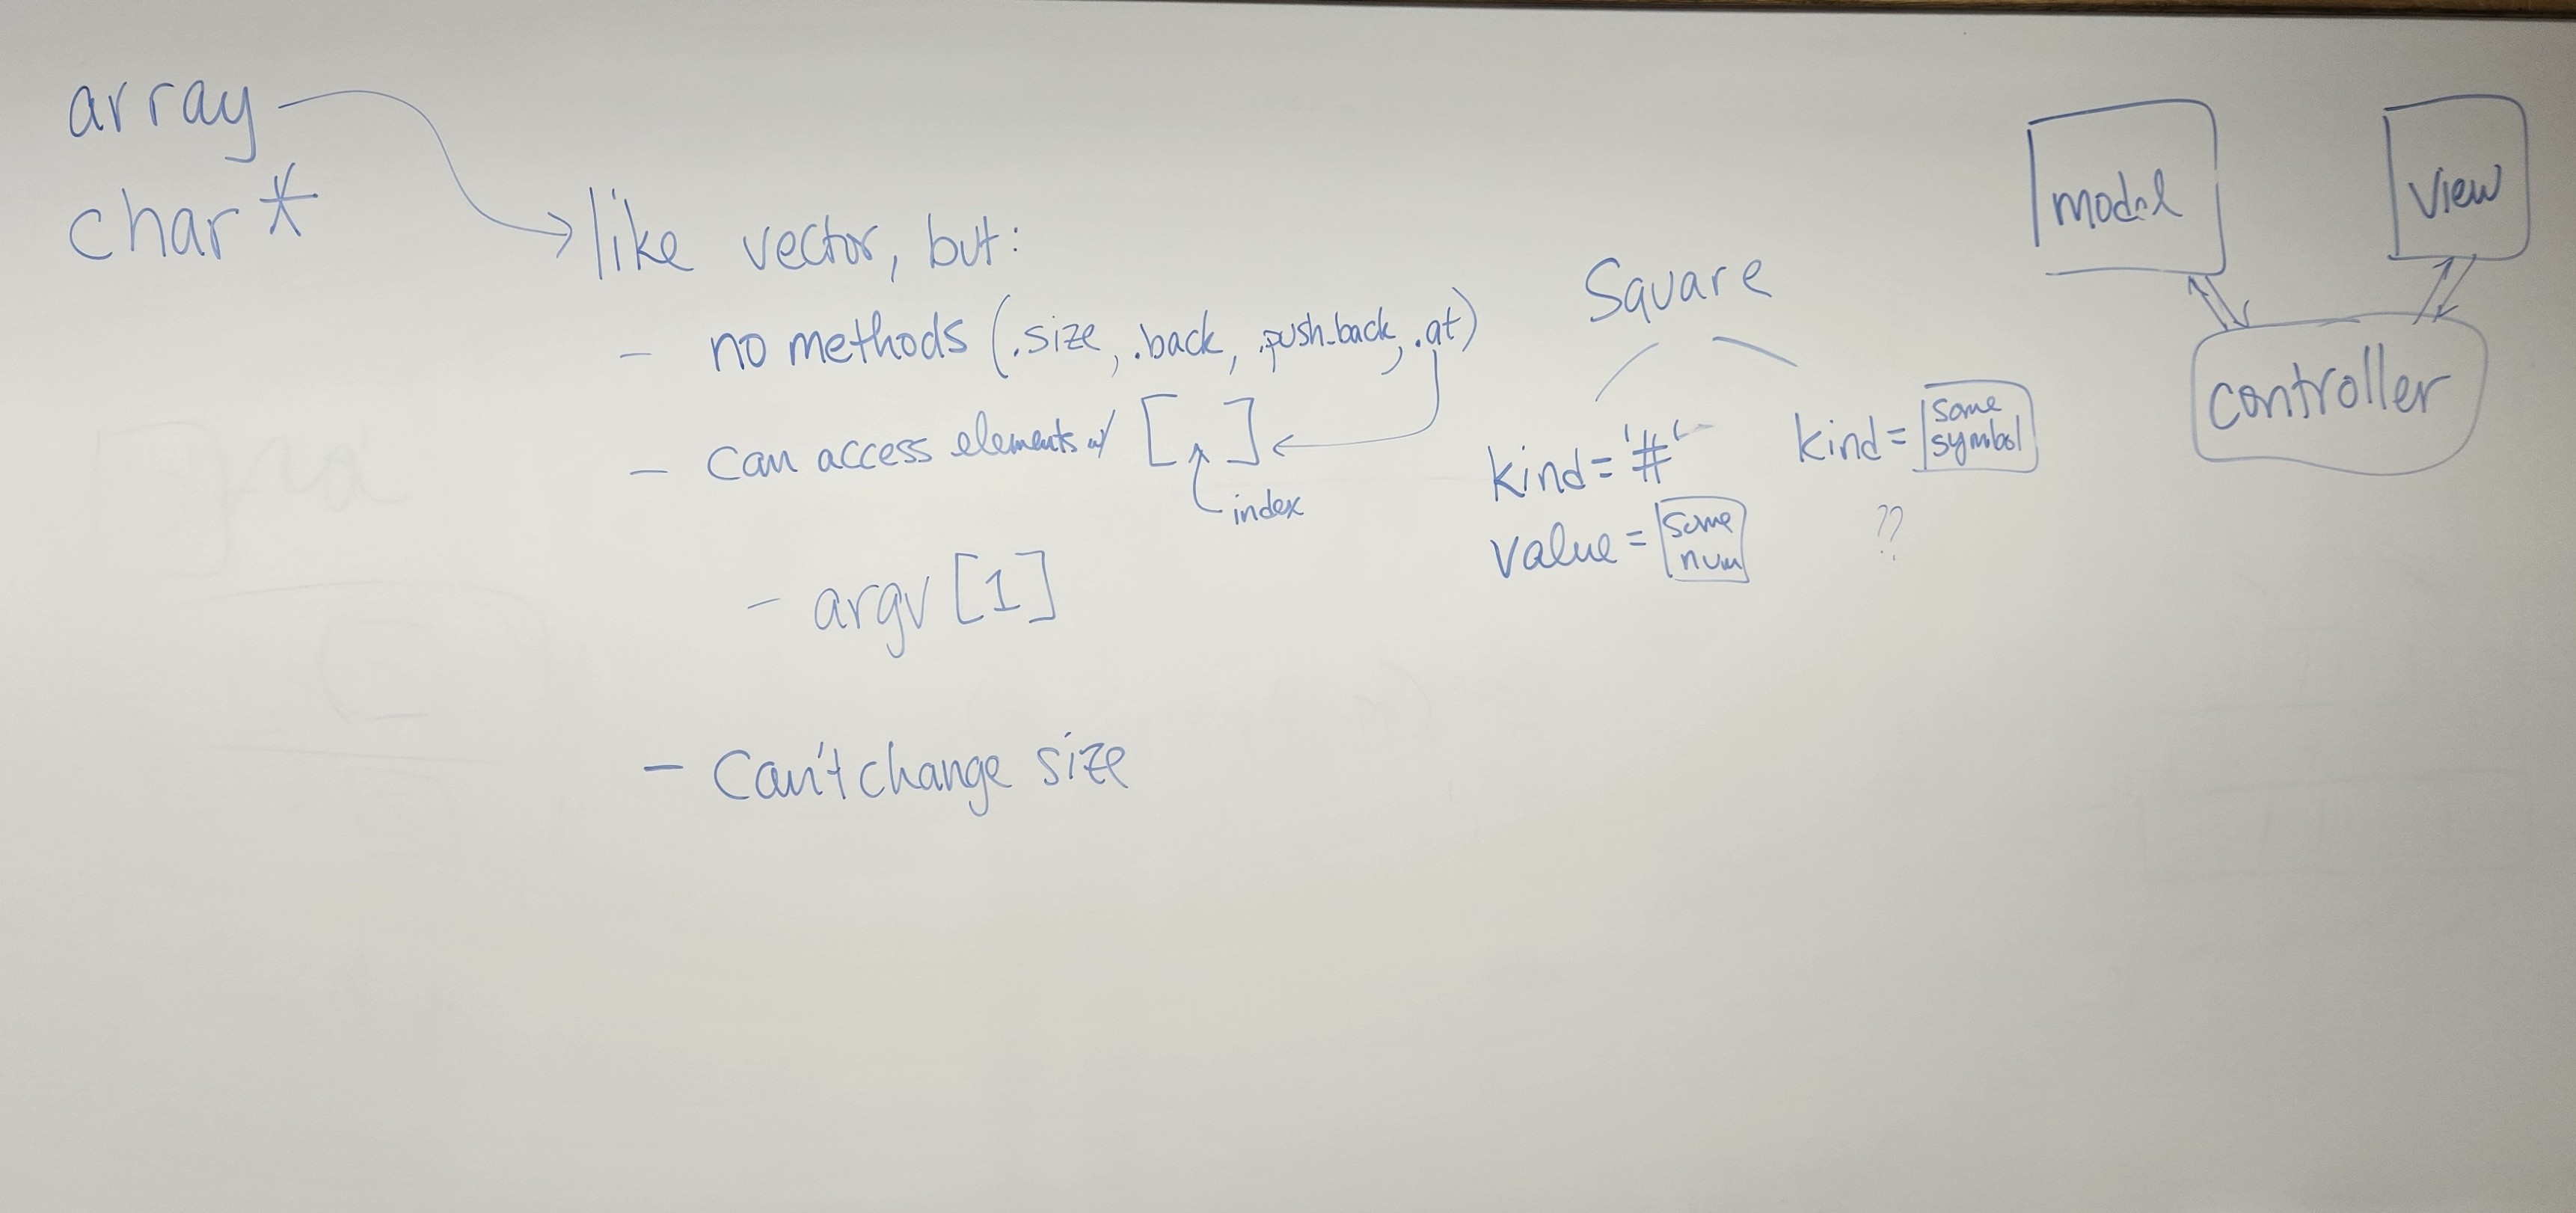 array
char*
like vector, but:
- no methods (.size, .back, .push_back, .at)
- can access elements w/ [ ]
index
- argv[1]
- Can't change size
Square
kind = '#'
value = some
num
kind = some
symbol
??
model
view
controller